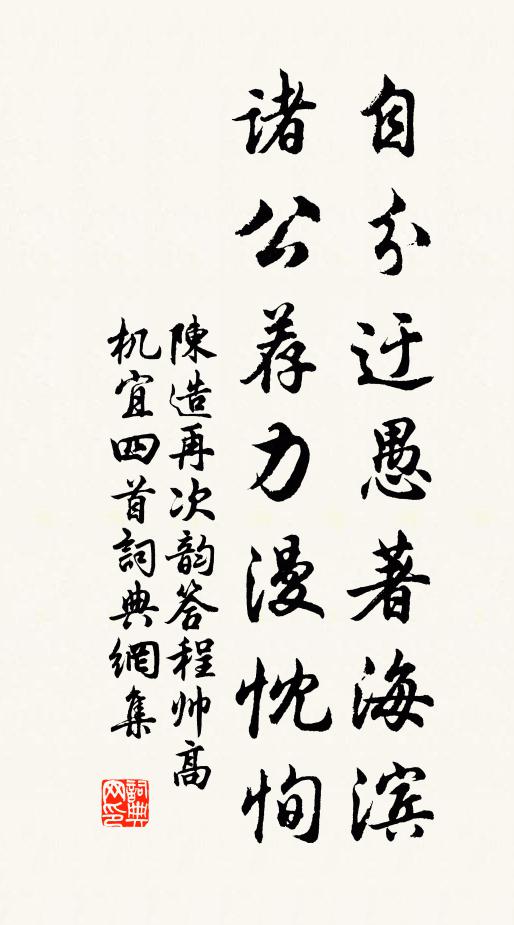 自分迂愚著海滨
诸公荐力漫忱恂
陳造再次韵答程帅高
机宜四首詞典網集
詞典网印